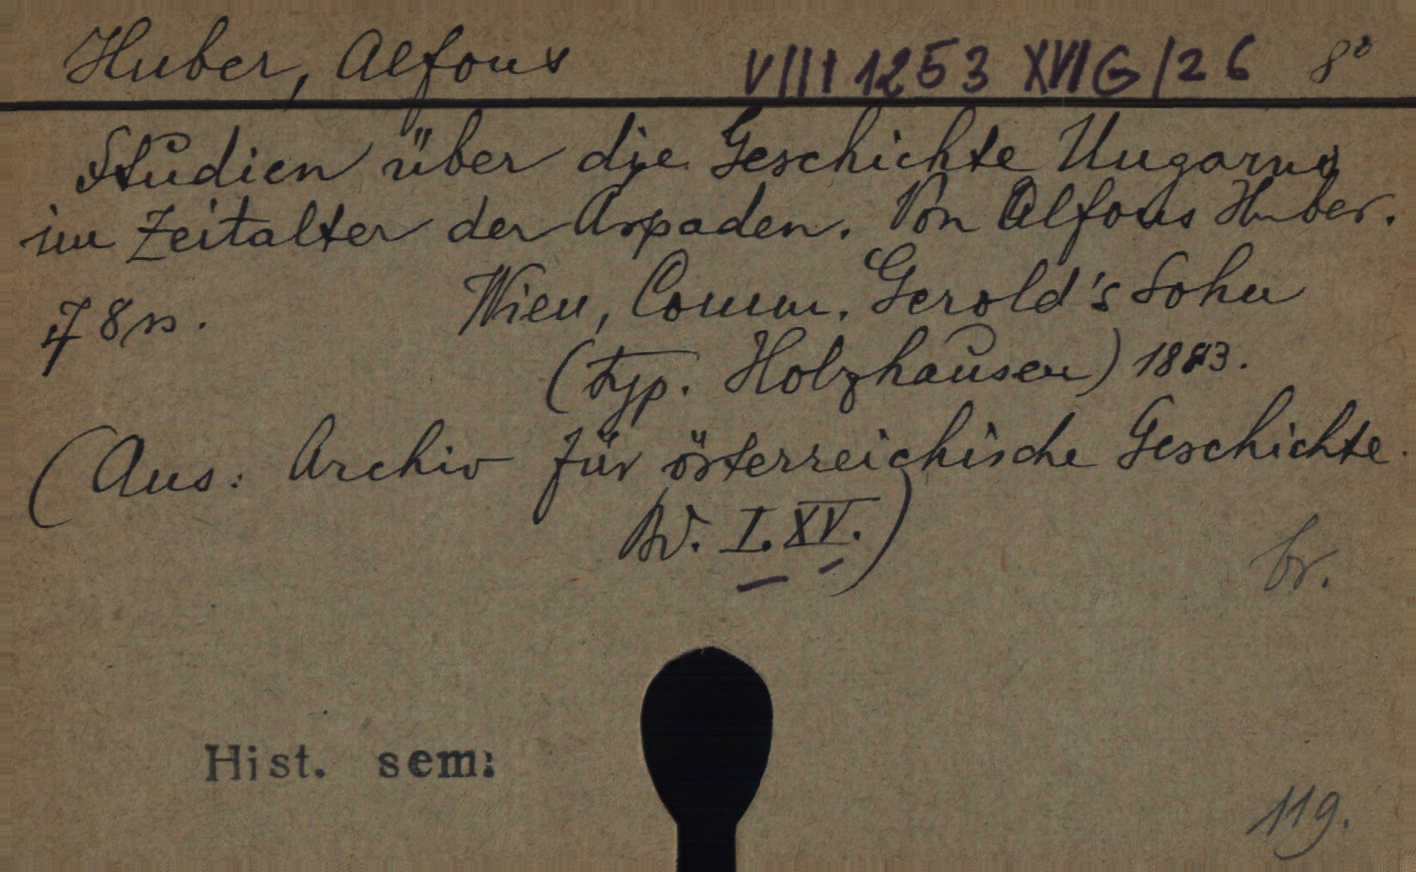 Huber, Alfons VIII 1253 XVIG/26 8°
Studien über die Geschichte Ungarns
im Zeitalter der Arpaden. Von Alfons Huber.
78 p. Wien, Comm. Gerold's Sohn
(typ. Holzhausen) 1883.
(Aus: Archiv für österreichische Geschichte.
Bd. I. XV.)
br.
Hist. sem.
119.